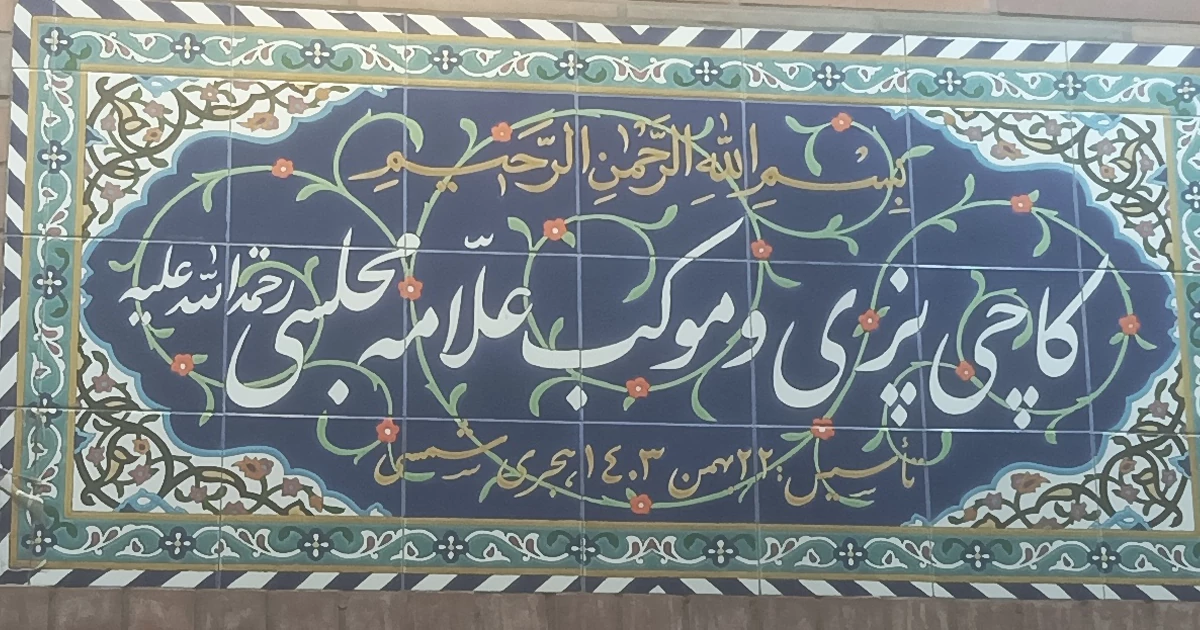 بِسْمِ اللهِ الرَّحْمٰنِ الرَّحیٖمِ
کاچی پزی و موکب علّامه مجلسی رحمةالله علیه
تأسیس: ۲۲ بهمن ۱٤۰۳ هجری شمسی